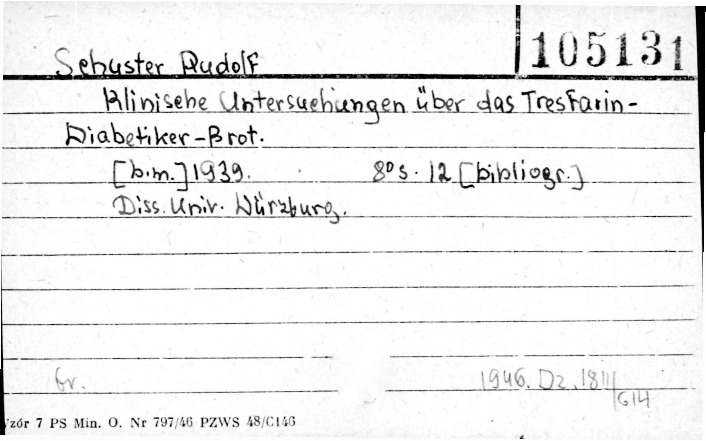 105131
Schuster Rudolf
Klinische Untersuchungen über das Tresfarin-
Diabetiker-Brot.
[b.m.] 1939. 8° s. 12 [bibliogr.]
Diss. Univ. Würzburg.
br. 1946. Dz. 1811/614
Wzór 7 PS Min. O. Nr 797/46 PZWS 48/C146